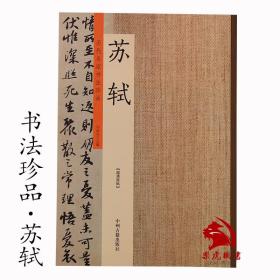 书法珍品·苏轼
情所至不自知返則朋友之憂蓋未可量
伏惟深照死生聚散之常理悟憂哀
苏轼
中州古籍出版社